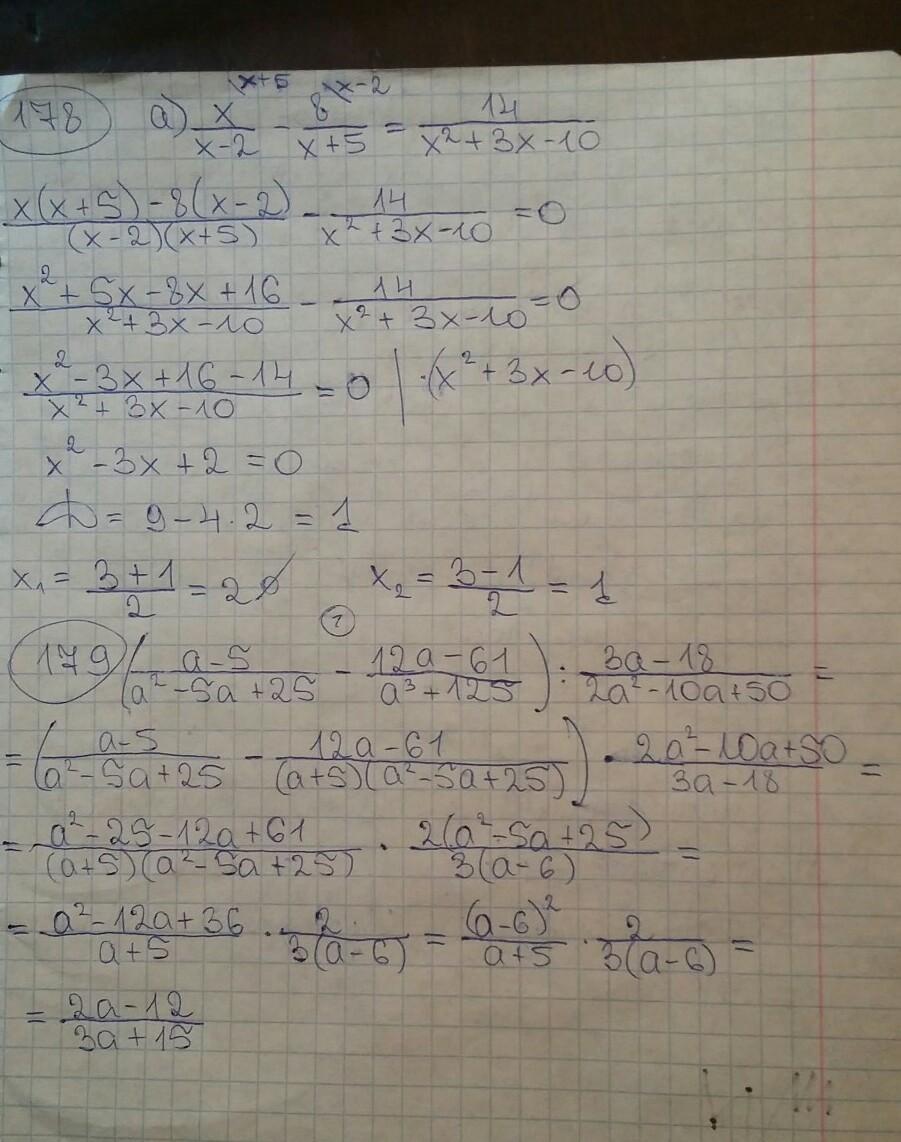 178 а) x/(x-2) \x+5 - 8/(x+5) \x-2 = 14/(x²+3x-10)
(x(x+5)-8(x-2))/((x-2)(x+5)) - 14/(x²+3x-10) = 0
(x²+5x-8x+16)/(x²+3x-10) - 14/(x²+3x-10) = 0
(x²-3x+16-14)/(x²+3x-10) = 0 | ·(x²+3x-10)
x²-3x+2=0
D = 9-4·2 = 1
x₁ = (3+1)/2 = 2 ø x₂ = (3-1)/2 = 1
179 ((a-5)/(a²-5a+25) - (12a-61)/(a³+125)) : (3a-18)/(2a²-10a+50) =
= ((a-5)/(a²-5a+25) - (12a-61)/((a+5)(a²-5a+25))) · (2a²-10a+50)/(3a-18) =
= (a²-25-12a+61)/((a+5)(a²-5a+25)) · 2(a²-5a+25)/(3(a-6)) =
= (a²-12a+36)/(a+5) · 2/(3(a-6)) = (a-6)²/(a+5) · 2/(3(a-6)) =
= (2a-12)/(3a+15)